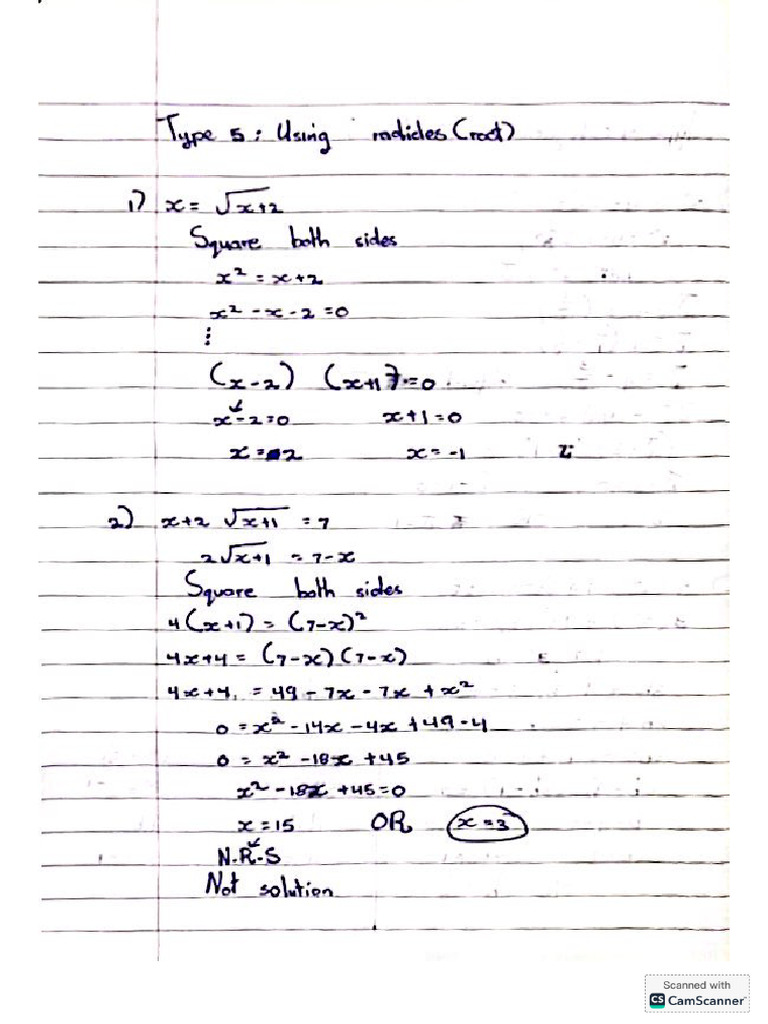 Type 5: Using radicles (root)
1) x = √x+2
Square both sides
x² = x+2
x² - x - 2 = 0
⋮
(x-2) (x+1) = 0
x-2=0 x+1=0
x = 2 x = -1
2) x+2 √x+1 = 7
2√x+1 = 7-x
Square both sides
4(x+1) = (7-x)²
4x+4 = (7-x)(7-x)
4x+4 = 49 - 7x - 7x + x²
0 = x² - 14x - 4x + 49 - 4
0 = x² - 18x + 45
x² - 18x + 45 = 0
x = 15 OR x = 3
N.R.S
Not solution
Scanned with
CS CamScanner